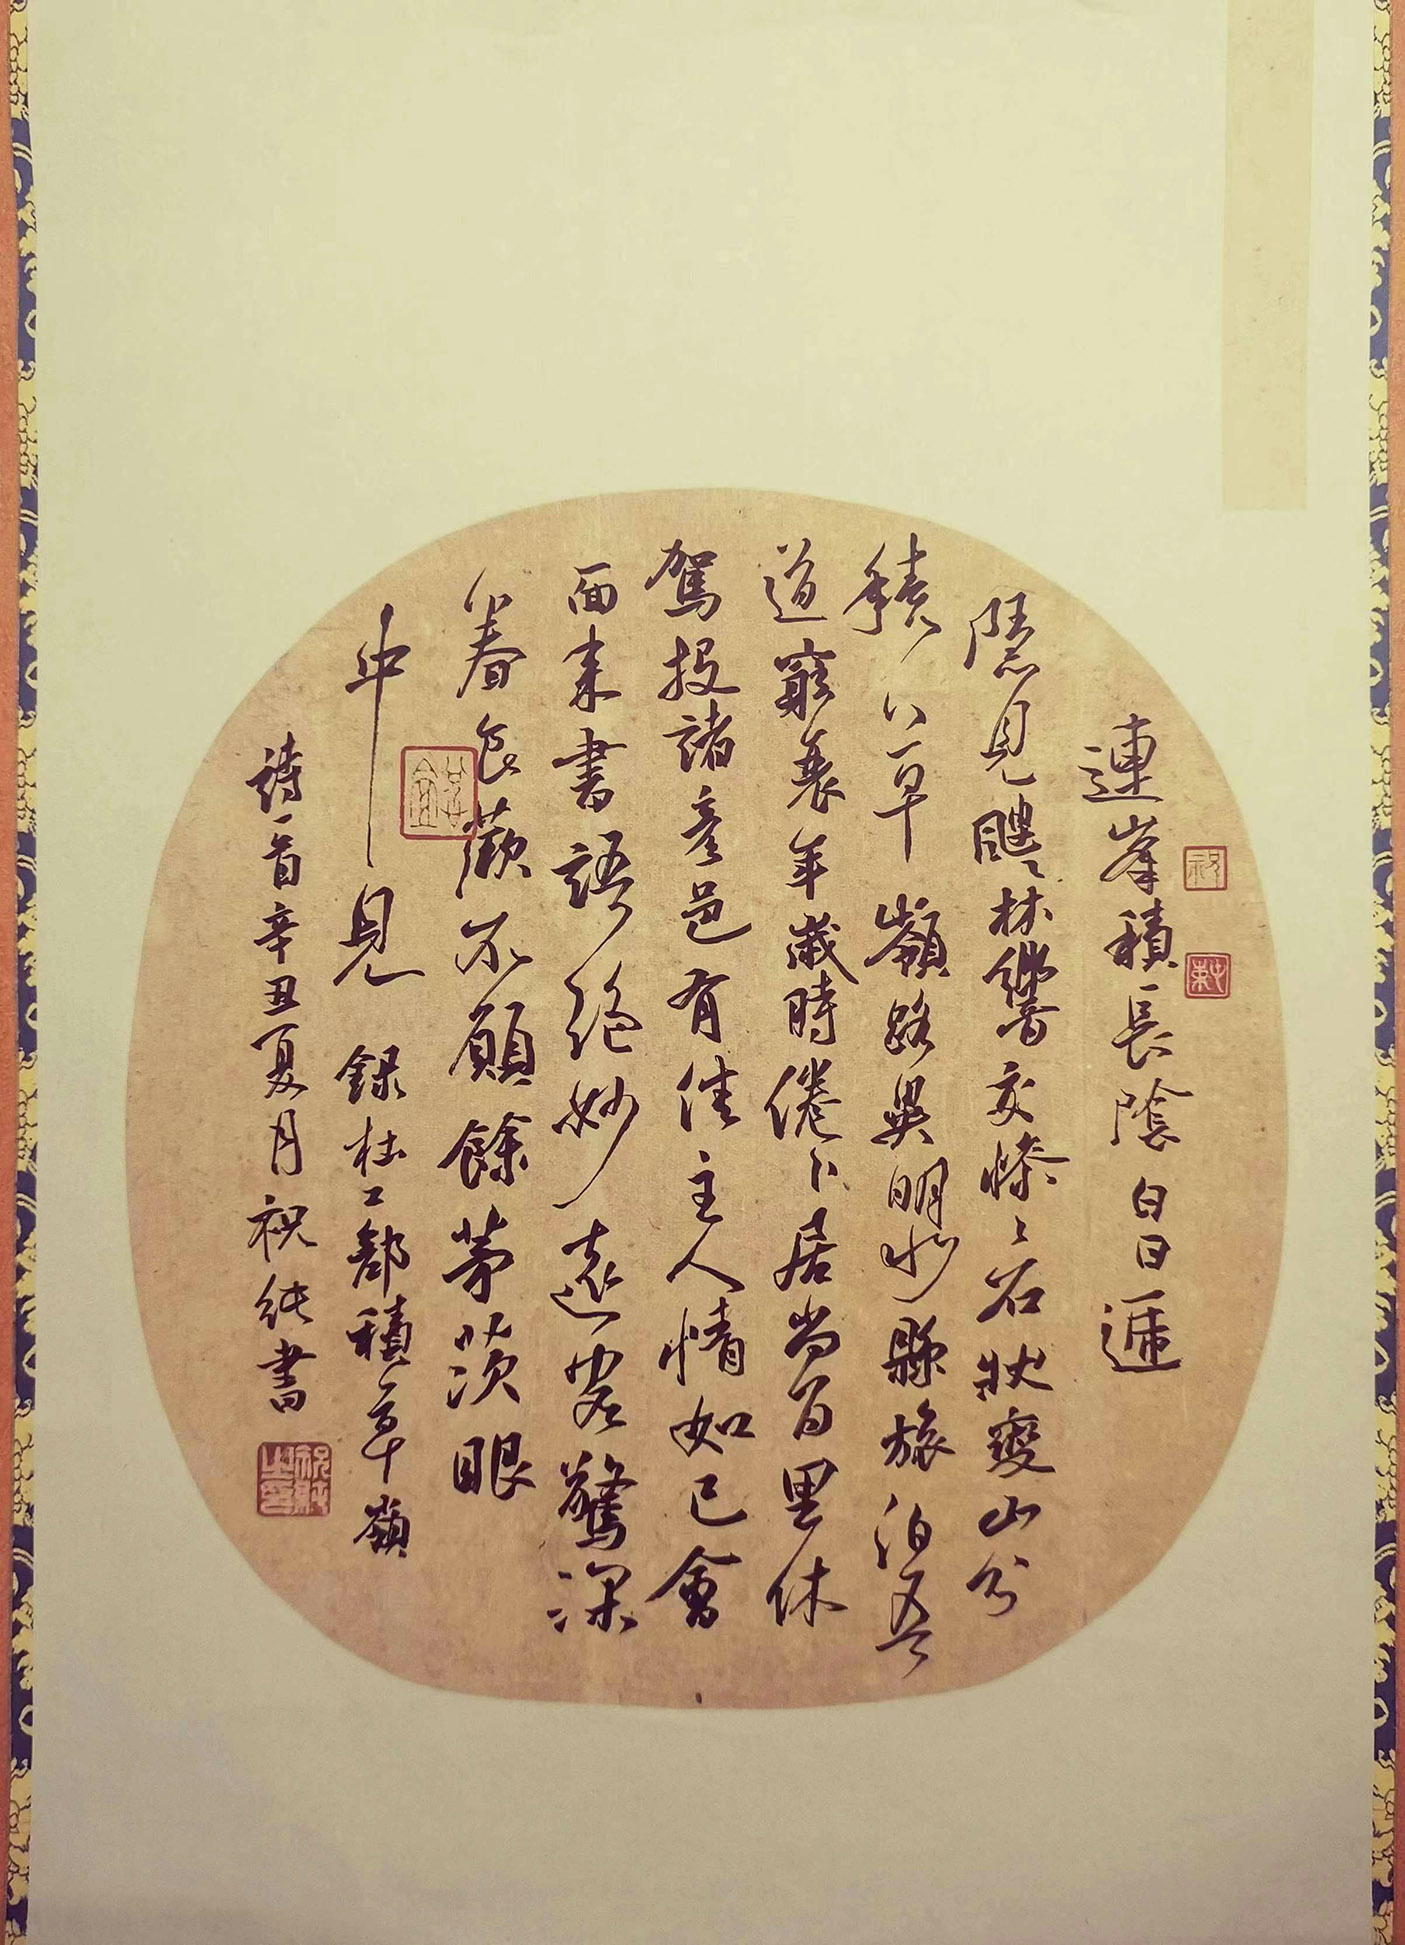 連峯積長陰白日遞
隱見飂〻林響交慘〻石狀變山分
積草嶺路異明水縣旅泊吾
道窮衰年歲時倦卜居尚百里休
駕投諸彥邑有佳主人情如已會
面來書語絕妙遠客驚深
眷食蕨不願餘茅茨眼
中見 錄杜工部積草嶺
詩一首辛丑夏月祝純書